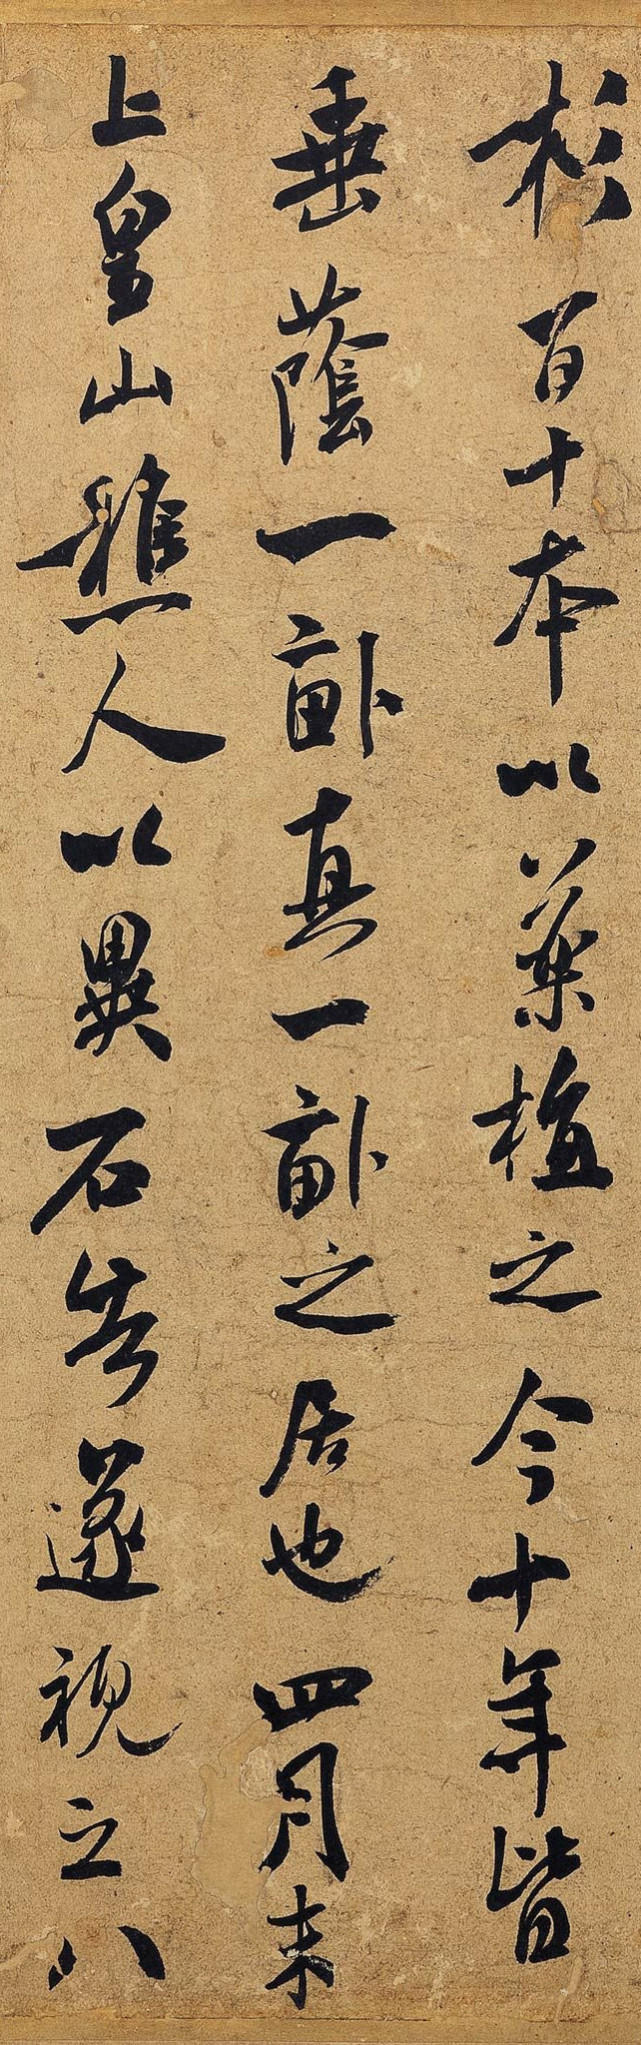 杉百十本以藥植之今十年皆
垂蔭一畝真一畝之居也四月末
上皇山樵人以異石告遂視之八